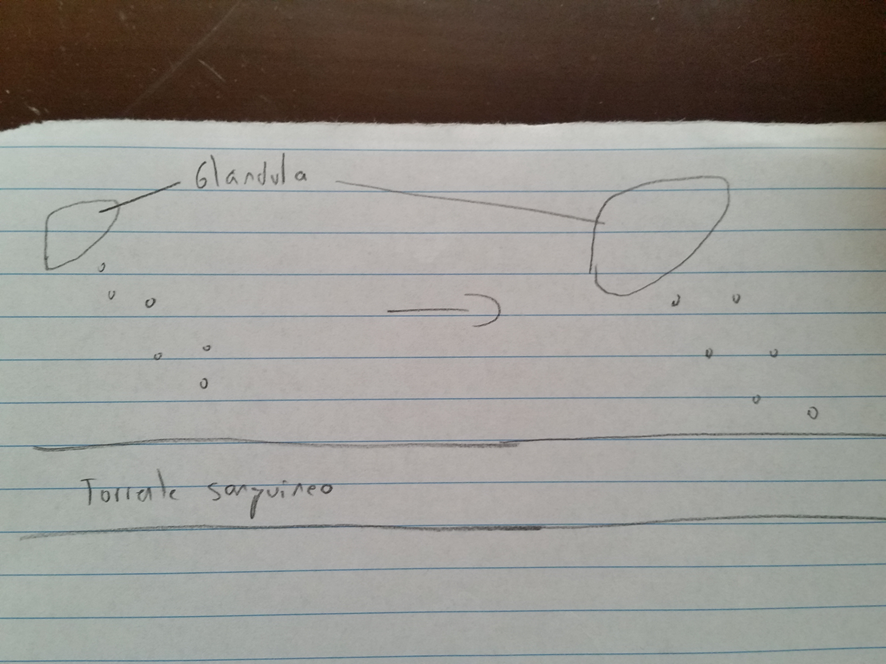 Glandula
Torrente sanguineo